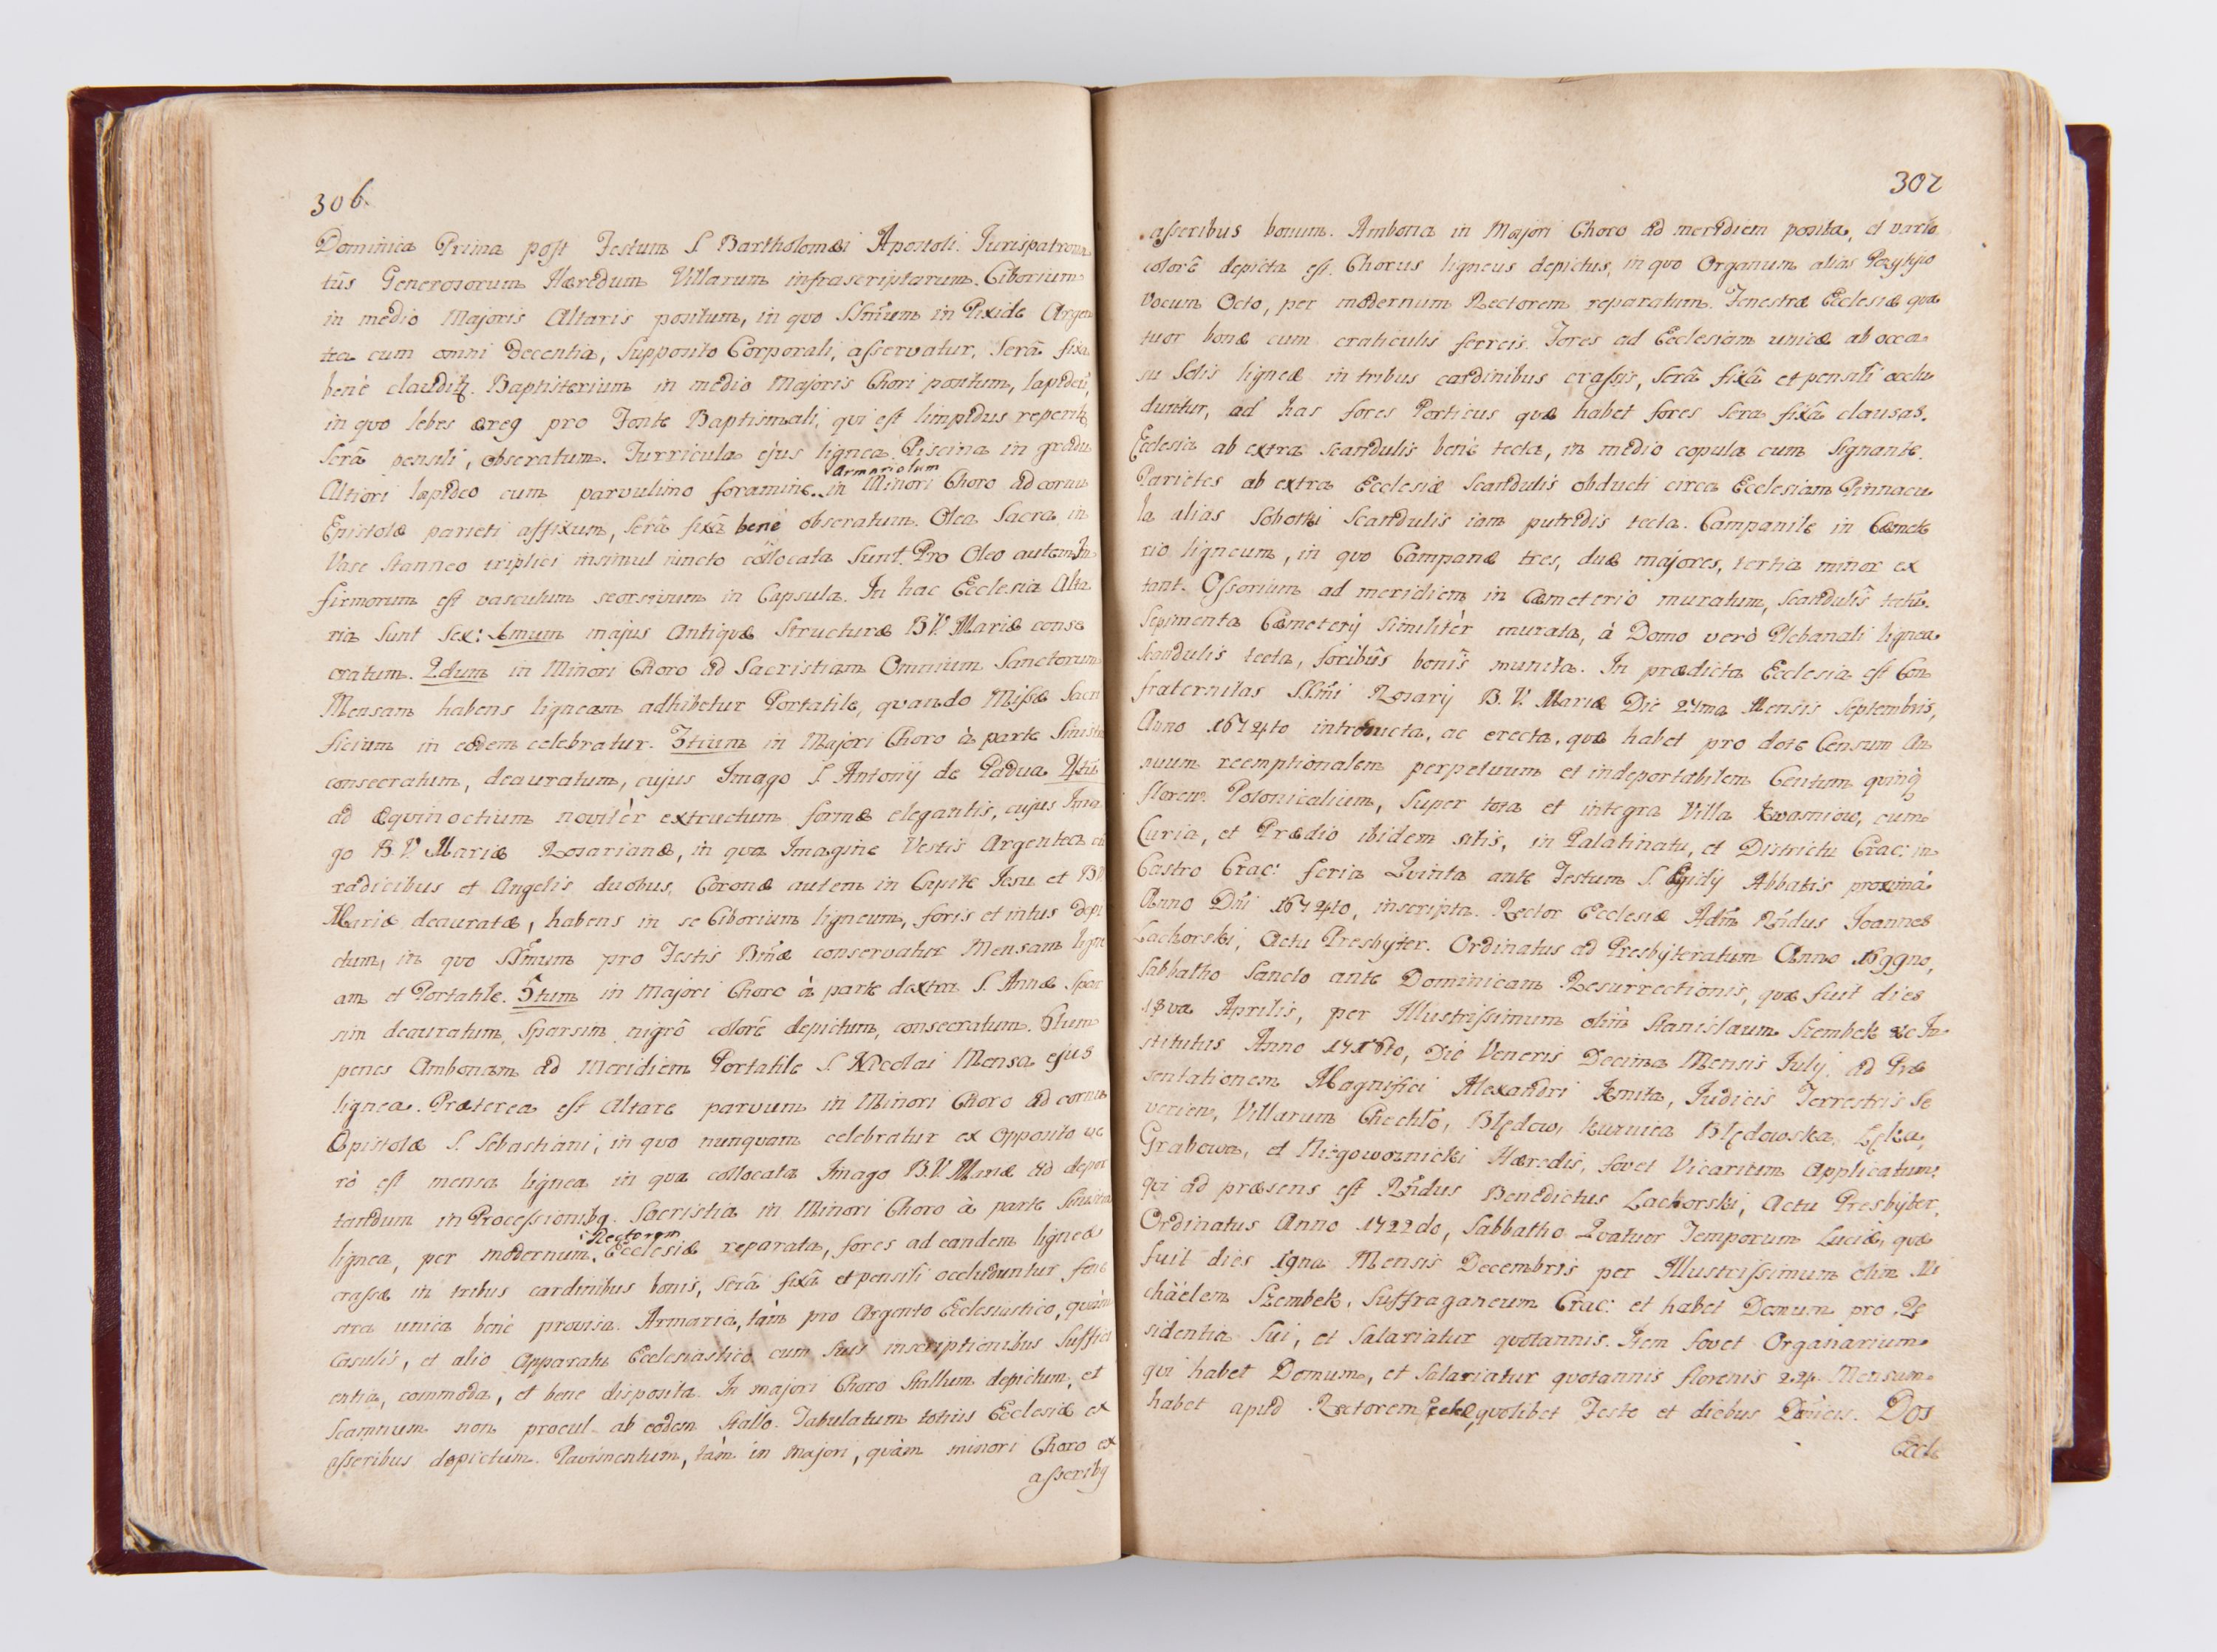 306.
Dominica Prima post Festum S. Bartholomæi Apostoli. Iurispatrona
tûs Generosorum Hæredum Villarum infrascriptarum. Ciborium
in medio Majoris Altaris positum, in quo SSmum in Pixide Argen
tea cum omni decentia, supposito Corporali, asservatur, Serâ fixa
benè claudit̃. Baptisterium in medio Majoris Chori positum, lapideũ,
in quo lebes æreg pro Fonte Baptismali, qui est limpidus reperit̃,
Serâ pensili, obseratum. Turricula ejus lignea. Piscina in gradu
Altiori lapideo cum parvulino foramine. Armariolum in Minori Choro ad cornu
Epistolæ parieti affixum, serâ fixâ benè obseratum. Olea Sacra in
Vase Stanneo triplici insimul iuncto collocata Sunt. Pro Oleo autem In
firmorum est vasculum seorsivum in Capsula. In hac Ecclesia Alta
ria Sunt Sex: 1mum majus Antiquæ Structuræ B.V. Mariæ conse
cratum. 2dum in Minori Choro ad Sacristiam Omnium Sanctorum
Mensam habens ligneam adhibetur Portatile, quando Missæ Sacri
ficium in eodem celebratur. 3tium in Majori Choro à parte Sinistra
consecratum, deauratum, cujus Imago S. Antonij de Padua 4tũ
ad æquinoctium novitèr extructum formæ elegantis, cujus Ima
go B.V. Mariæ Rosarianæ, in qua Imagine Vestis Argentea cũ
radicibus et Angelis duobus, Coronæ autem in Capite Iesu et BV
Mariæ deauratæ, habens in se Ciborium ligneum, foris et intus depi
ctum, in quo SSmum pro Festis Bmæ conservatur Mensam ligne
am et Portatile. 5tum in Majori Choro à parte dextra S. Annæ Spar
sim deauratum, Sparsim nigrô colorê depictum, consecratum. 6tum
penes Ambonam ad Meridiem Portatile S. Nicolai Mensa ejus
lignea. Præterea est Altare parvum in Minori Choro ad cornu
Epistolæ S. Sebastiani, in quo nunquam celebratur ex Opposito ve
rò est mensa lignea in qua collocata Imago B.V. Mariæ ad depor
tandum in Processionibq. Sacristia in Minori Choro à parte Sinistra
lignea, per modernum Rectorem Ecclesiæ reparata, fores ad eandem ligneæ
crassæ in tribus cardinibus bonis, serâ fixâ et pensili occluduntur fene
stra unica benè provisa. Armaria, tàm pro Argento Ecclesiastico, quàm
Casulis, et alio Apparatu Ecclesiastico cum suis inscriptionibus Suffici
entia, commoda, et bene disposita. In majori Choro Stallum depictum, et
Scamnum non procul ab eodem Stallo. Tabulatum totius Ecclesiæ ex
asseribus depictum. Pavimentum, tàm in Majori, quàm minori Choro ex
asseribq
307
asseribus bonum. Ambona in Majori Choro ad meridiem posita, et vario
colorê depicta est. Chorus ligneus depictus, in quo Organum alias Pozytyw
Vocum Octo, per modernum Rectorem reparatum. Fenestræ Ecclesiæ qua
tuor bonæ cum craticulis ferreis. Fores ad Ecclesiam unicæ ab occa
su Solis ligneæ in tribus cardinibus crassis, Serâ fixâ et pensili occlu
duntur, ad has fores Porticus quæ habet fores Sera fixâ clausas.
Ecclesia ab extra Scandulis benè tecta, in medio copula cum Signante.
Parietes ab extra Ecclesiæ Scandulis obducti circa Ecclesiam Pinnacu
la alias Sobotki Scandulis iam putridis tecta. Campanile in Cæmete
rio ligneum, in quo Campanæ tres, duæ majores, tertia minor ex
tant. Ossorium ad meridiem in Cæmeterio muratum, Scandulis tectũ.
Sepimenta Cæmeterij similitèr murata, à Domo verò Plebanali lignea
Scandulis tecta, foribûs bonîs munita. In prædicta Ecclesia est Con
fraternitas SSmi Rosarij B.V. Mariæ Die 27ma Mensis Septembris,
Anno 1674to introducta, ac erecta, quæ habet pro dote Censum An
nuum reemptionalem perpetuum et indeportabilem Centum quinq̃
floren: Polonicalium, Super tota et integra Villa Kwasniow, cum
Curia, et Prædio ibidem sitis, in Palatinatu, et Districtu Crac: in
Castro Crac: feria Quinta ante Festum S. Egidij Abbatis proximâ
Anno Dni 1674to, inscripta. Rector Ecclesiæ Adm̃ Rñdus Ioannes
Lachorski, Actu Presbyter. Ordinatus ad Presbyteratum Anno 1699no,
Sabbatho Sancto ante Dominicam Resurrectionis, quæ fuit dies
18va Aprilis, per Illustrissimum olim Stanislaum Szembek &c In
stitutus Anno 1716to, Die Veneris Decima Mensis Iulij. ad Præ
sentationem Magnifici Alexandri Kmita, Iudicis Terrestris Se
verien, Villarum Chechło, Błędow, Kuznica Błędowska, Łęka,
Grabowa, et Niegowoznicki Hæredis, fovet Vicarium Applicatum:
qui ad præsens est Rñdus Benedictus Lachorski, Actu Presbyter,
Ordinatus Anno 1722do, Sabbatho Quatuor Temporum Luciæ, quæ
fuit dies 19na Mensis Decembris per Illustrissimum olim Mi
chäelem Szembek, Suffraganeum Crac: et habet Domum pro Re
sidentia Sui, et Salariatur quotannis. Item fovet Organarium
qui habet Domum, et Salariatur quotannis florenis 24. Mensam
habet apud Rectorem Eccle, quolibet Festo et diebus Dñicis. Dos
Eccle